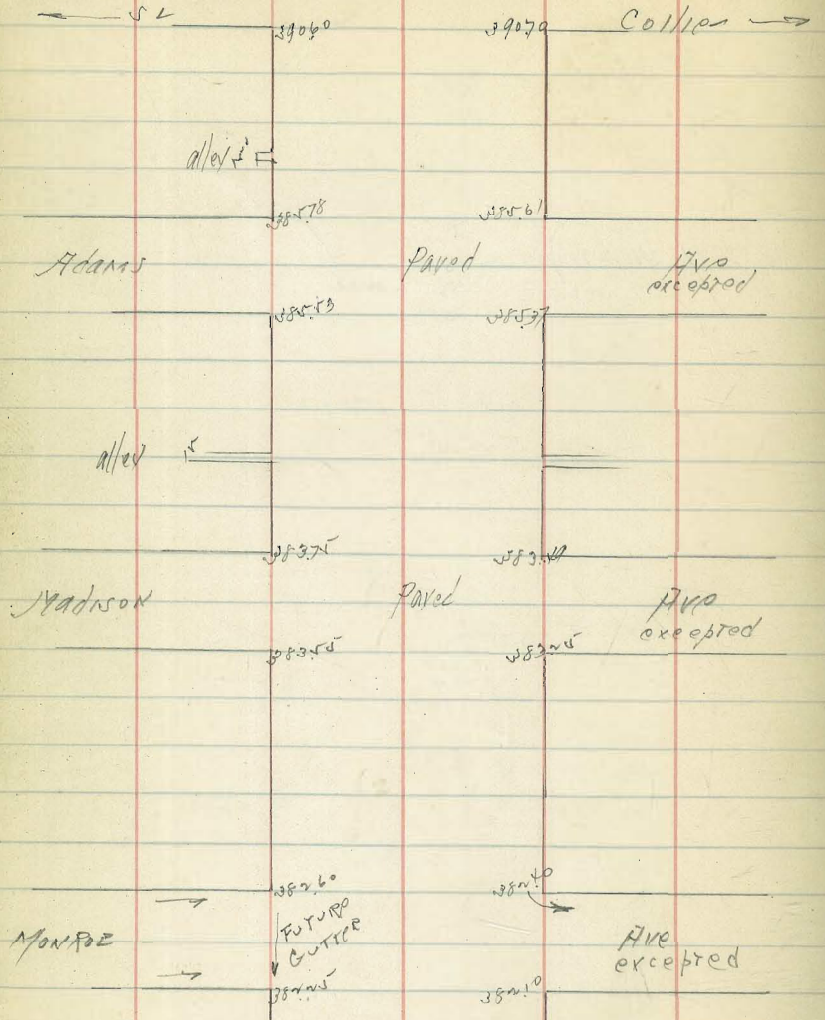 390.60 390.70 Collier
alley
385.78 385.61
Adams Paved Ave
excepted
385.53 385.37
alley 15
383.75
Madison Paved Ave
excepted
383.55 383.25
382.60 382.40
FUTURE
GUTTER
MONROE Ave
excepted
382.25 382.10